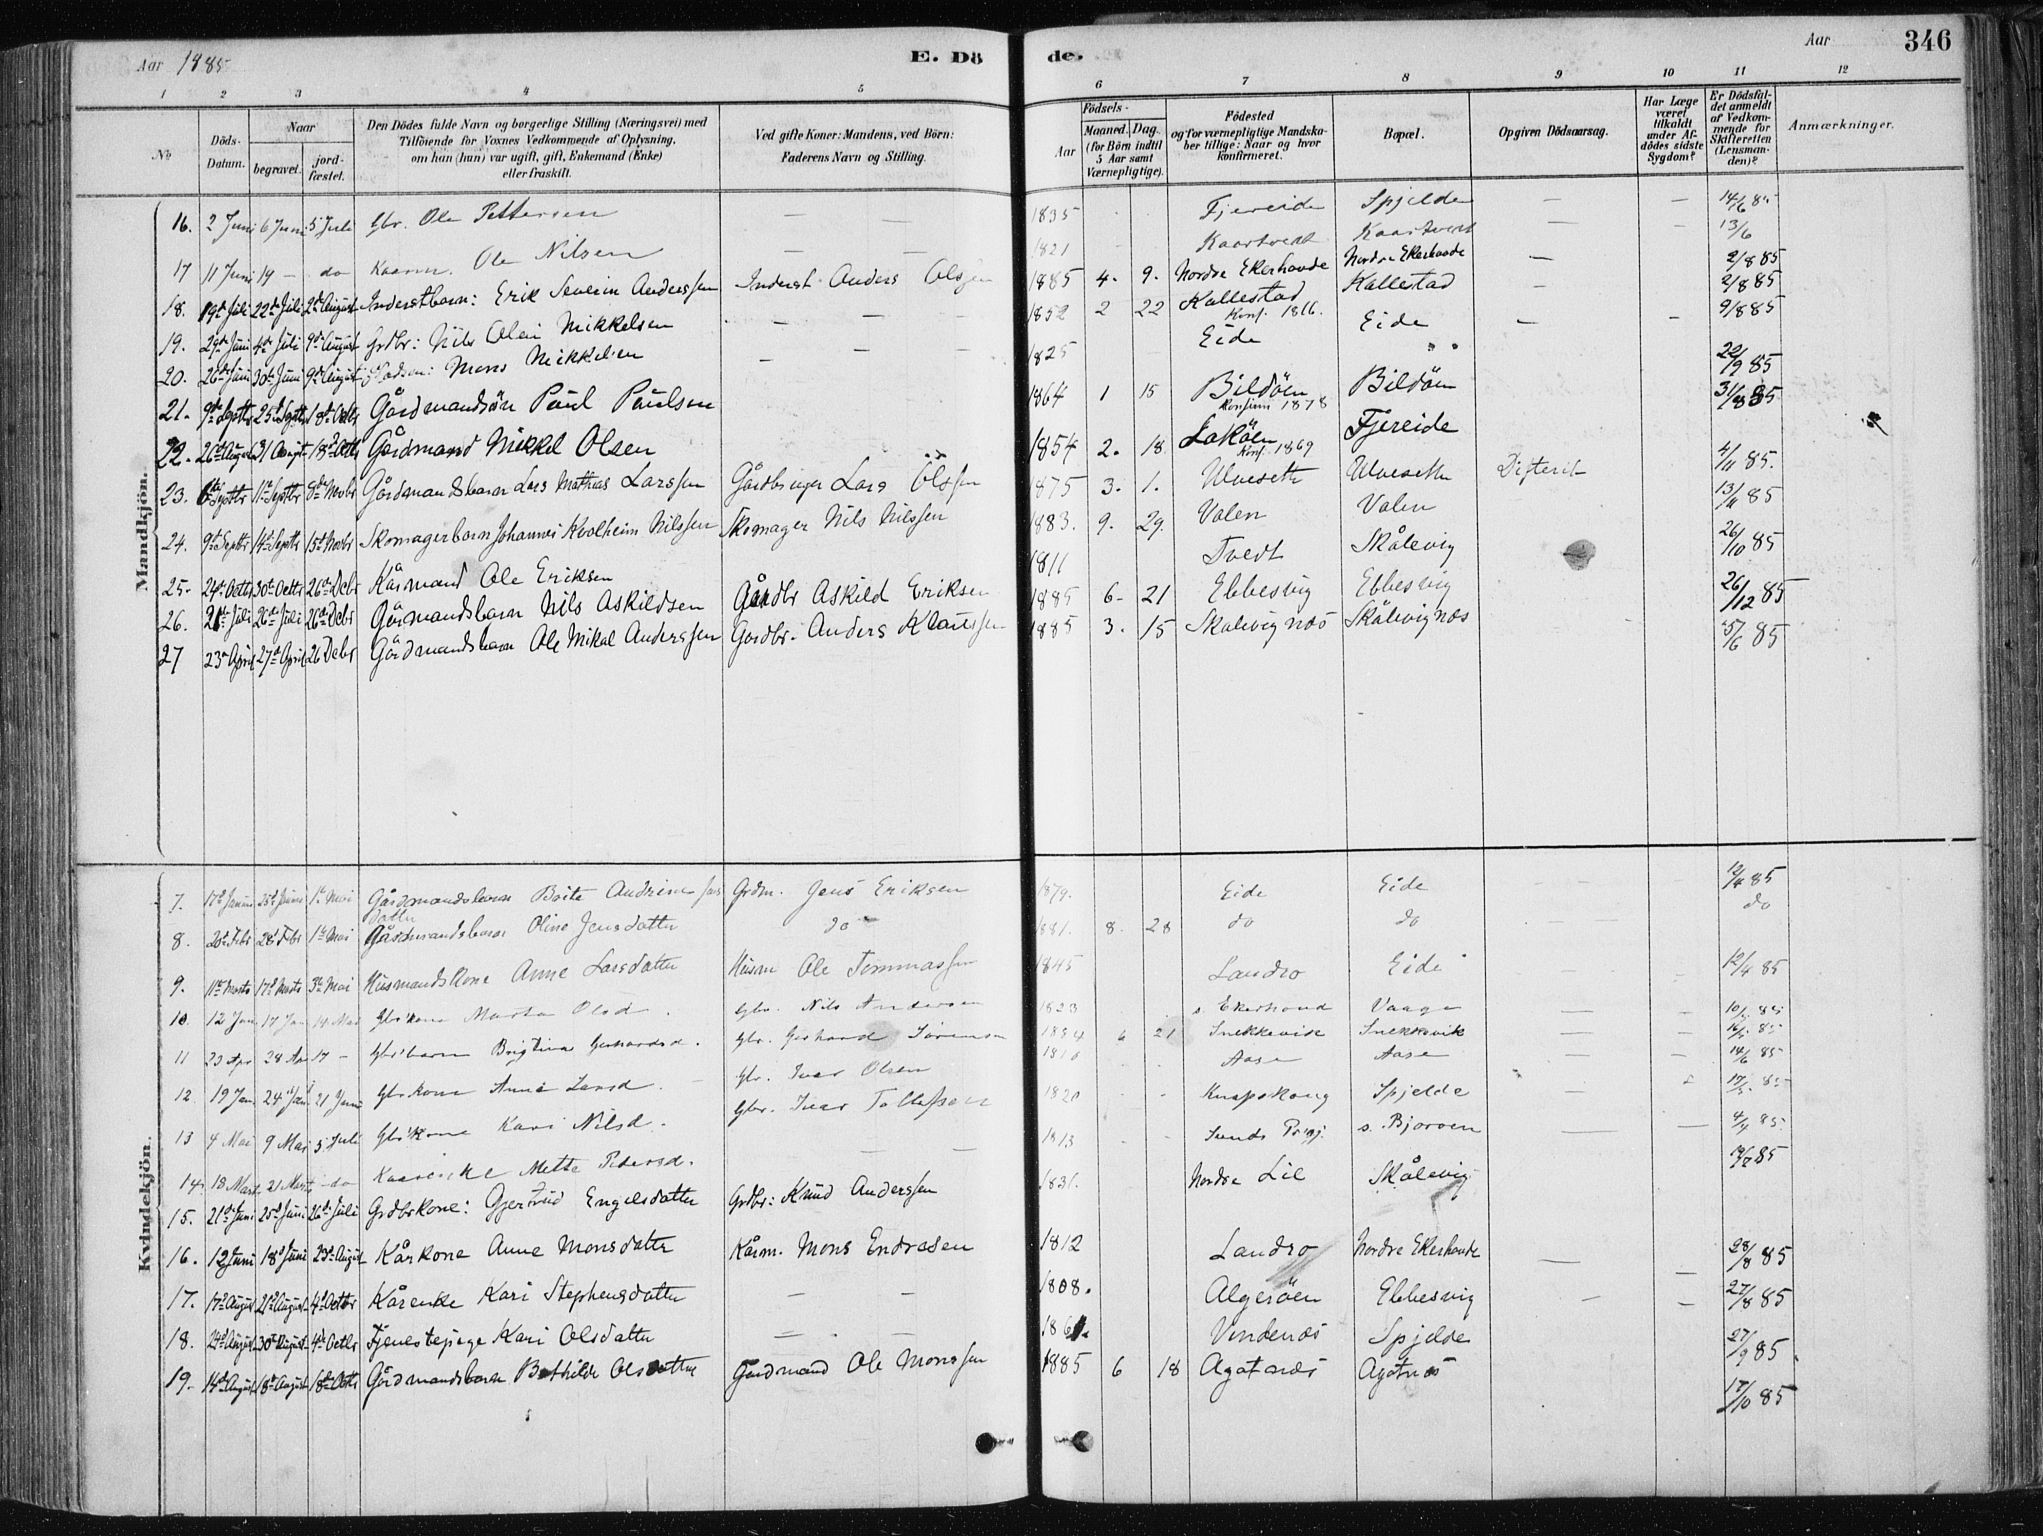 Aar 1885 E. Dö de. Aar 346
1 2 3 4 5 6 7 8 9 10 11 12
No
Döds-Datum.
Naar
begravet.
jord-fæstet.
Den Dödes fulde Navn og borgerlige Stilling (Næringsvei) med
Tilföiende for Voxnes Vedkommende af Oplysning,
om han (hun) var ugift, gift, Enkemand (Enke)
eller fraskilt.
Ved gifte Koner: Mandens, ved Börn:
Faderens Navn og Stilling.
Födsels-
Aar
Maaned. Dag.
(for Börn indtil
5 Aar samt
Værnepligtige).
Födested
og for værnepligtige Mandska-
ber tillige: Naar og hvor
konfirmeret.
Bopæl.
Opgiven Dödsaarsag.
Har Læge
været
tilkaldt
under Af-
dödes sidste
Sygdom?
Er Dödsfal-
det anmeldt
af Vedkom-
mende for
Skifteretten
(Lensman-
den)?
Anmærkninger.
Mandkjön.
16. 2 Juni 6 Juni 5 Juli Gbr. Ole Pettersen — — 1835 Fjereide Spjelde — — 14/6 85
17 11 Juni 14 — do Kaarm. Ole Nilsen — — 1821 Kaartvedt Kaartvedt — 13/6
18. 19de Juli 22de Juli 2de August Inderstbarn: Erik Severin Anderssen Inderst. Anders Olsen 1885 4. 9. Nordre Ekerhovde Nordre Ekerhovde — 2/8 85
19. 29de Juni 4de Juli 9de August Grdbr: Nils Olai Mikkelsen — — 1852 2 22 Kallestad Konf. 1866. Kallestad — 2/8 85
20. 26de Juni 30te Juni 9de August Mons Mikkelsen — — 1825 Eide Eide — 9/8 85
21. 9de Septbr 25de Septbr 18de Octbr Gårdmandsön Paul Paulsen 1864 1 15 Bildöen Konfirm 1878 Bildöen 22/9 85
22. 26de August 31 August 18de Octb Gårdmand Mikkel Olsen 1854 2. 18 Loköen Konf. 1869 Fjereide 31/8 85
23. 6te Septbr 11te Septbr 8de Novbr Gårdmandsbarn Lars Mathias Larssen Gårdbruger Lars Olssen 1875 3. 1. Ulveseth Ulveseth Difterit 4/11 85.
24. 9de Septbr 14de Septbr 15de Novbr Skomagerbarn Johannes Kvalheim Nilssen Skomager Nils Nilssen 1883. 9. 29. Valen Valen 13/11 85
25. 24de Octbr 30te Octbr 26de Debr Kårmand Ole Eriksen 1811 Tvedt Skålevig 26/10 85
26. 21de Juli 26de Juli 26de Debr Gårmandsbarn Nils Askildsen Gårdbr Askild Eriksen 1885 6- 21 Ebbesvig Ebbesvig 26/12 85
27 23de April 27de April 26 Debr Gårdmandsbarn Ole Mikal Anderssen Gårdbr. Anders Klaussen 1885 3. 15 Skålevignæs Skålevignæs 5/6 85
Kvindekjön.
7. 17de Januar 25de Januar 1te Mai Gårdmandsbarn Brita Andrine Jens datter Grdm. Jens Eriksen 1879. Eide Eide 12/4 85
8. 20de Febr 28de Febr 1te Mai Gårdmandsbarn Oline Jensdatter do 1881. 8. 28 do do do
9. 11te Marts 17de Marts 3de Mai Husmandskone Anne Larsdatter Husm Ole Tommassen 1845 Landro Eide 12/4 85
10. 12 Jan 17 Jan 14 Mai Gbrkone Marta Olsd. Gbr. Nils Andersen 1823 s. Ekerhovd Vaage — — 85
11 23 Apr 28 Apr 17 — Gbrbarn Brigtina Gerhardsd. Gbr. Gerhard Sörensen 1884 6 21 Snekkevik Snekkevik — — 85
12. 19 Jan 24 Jan 21 Juni Gbrkone Anna Larsd. Gbr. Ivar Olsen 1810 Aase Aase — — 14/6 85
13 4 Mai 9 Mai 5 Juli Gbrkone Kari Nilsd. Gbr. Ivar Tollefsen 1820 Knapskong Spjelde — 85
14. 18 Mart 21 Mart do Kaarenke Mette Pedersd. — — 1813 Sunds Prgj. s. Bjoröen — — 4/4 85.
15. 21de Juni 25de Juni 26de Juli Grdbrkone: Gjertrud Engelsdatter Grdbr: Knud Anderssen 1831. Nordre Lie Skålevig 85
16. 12 Juni 18de Juni 23de August Kårkone Anne Monsdatter Kårm. Mons Endresen 1812 Landro Nordre Ekerhovde 28/8 85
17. 17de August 21de August 4de Octbr Kårenke Kari Stephensdatter — — 1808. Algeröen Ebbesvig — — 27/8 85
18. 24de August 30te August 4de Octbr Tjenestepige Kari Olsdatter — — 1861. Vindenæs Spjelde 27/9 85
19. 14de August 18de August 18de Octb Gårdmandsbarn Bothilde Olsdatter Gårdmand Ole Monssen 1885 6 18 Agatnæs Agatnæs 17/10 85